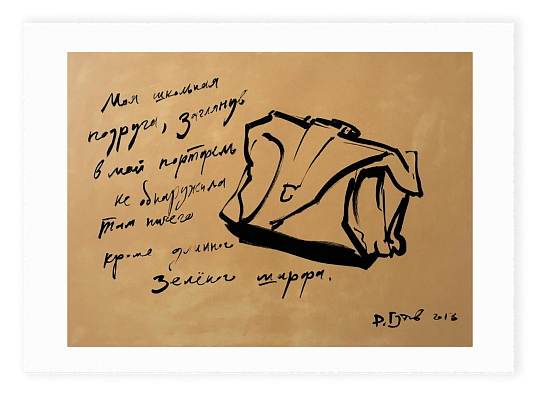 Моя школьная
подруга, заглянув
в мой портфель
не обнаружила
там ничего
кроме длинного
зелёного шарфа.
Р. Гутов 2013